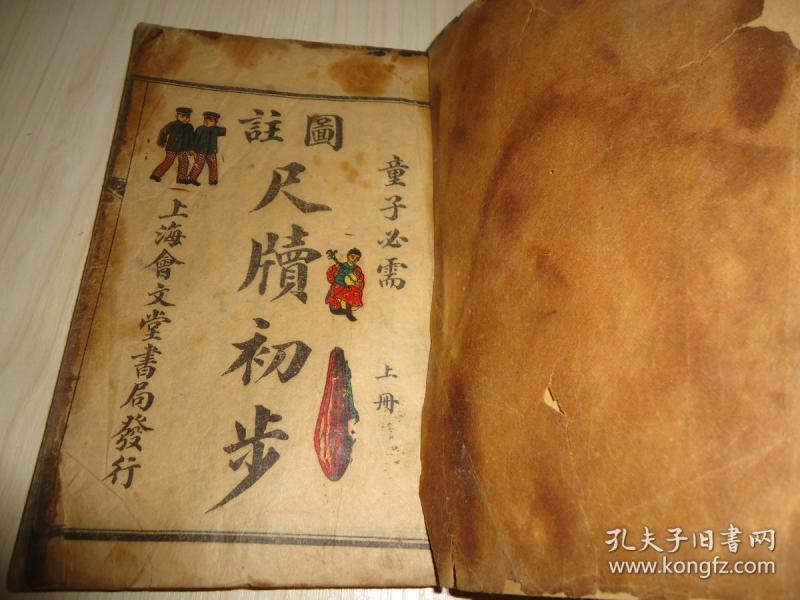 童子必需
上冊
圖註
尺牘初步
上海會文堂書局發行
孔夫子旧书网
www.kongfz.com